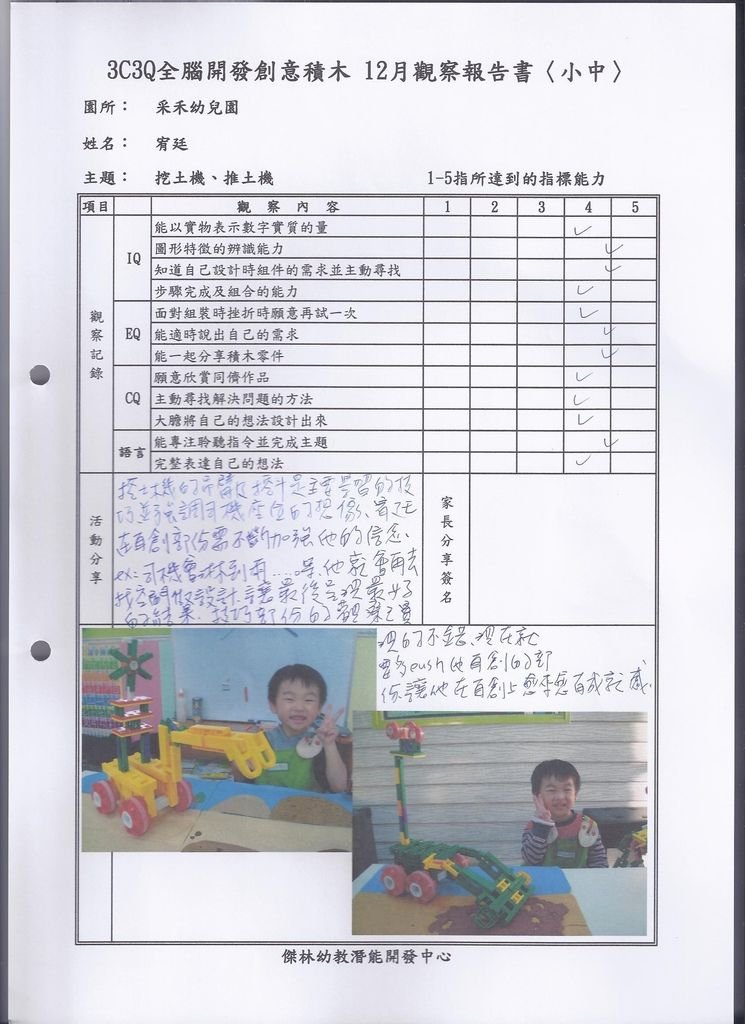 3C3Q全腦開發創意積木 12月觀察報告書〈小中〉
園所： 采禾幼兒園
姓名： 宥廷
主題： 挖土機、推土機 1-5指所達到的指標能力
項目 觀察內容 1 2 3 4 5
觀察記錄
IQ
能以實物表示數字實質的量
圖形特徵的辨識能力
知道自己設計時組件的需求並主動尋找
步驟完成及組合的能力
EQ
面對組裝時挫折時願意再試一次
能適時說出自己的需求
能一起分享積木零件
CQ
願意欣賞同儕作品
主動尋找解決問題的方法
大膽將自己的想法設計出來
語言
能專注聆聽指令並完成主題
完整表達自己的想法
活動分享
挖土機的吊臂及挖斗是主要學習的技
巧並強調司機座位的想像、宥廷
在自創部份需不斷加強他的信念.
ex:司機會淋到雨......等他就會再去
找空間做設計讓最後呈現最好
的結果.技巧部份的觀察
現的不錯、現在就
要多push他自創的部
份讓他在自創上愈來愈有成就感.
家長分享簽名
傑林幼教潛能開發中心